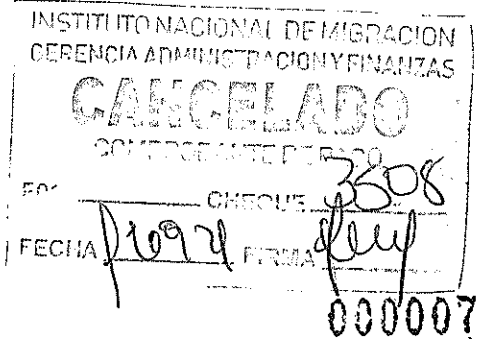 INSTITUTO NACIONAL DE MIGRACION
GERENCIA ADMINISTRACION Y FINANZAS
CANCELADO
COMPROBANTE DE PAGO
CHEQUE 3808
FECHA FIRMA
000007